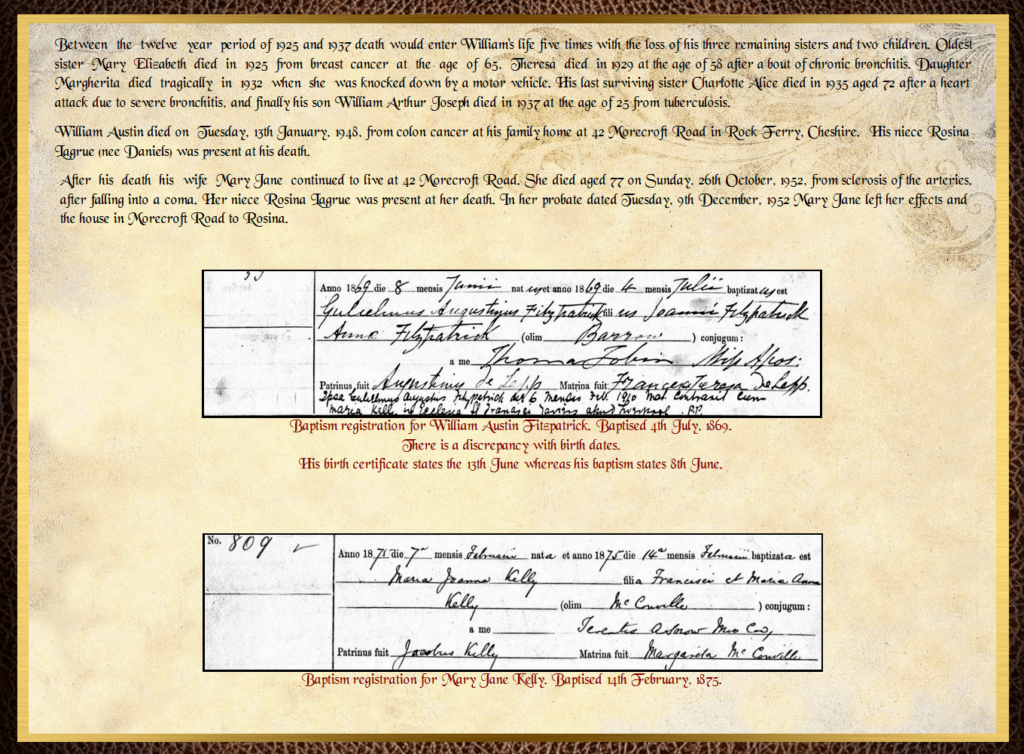 Between the twelve year period of 1925 and 1937 death would enter William's life five times with the loss of his three remaining sisters and two children. Oldest
sister Mary Elizabeth died in 1925 from breast cancer at the age of 65. Theresa died in 1929 at the age of 58 after a bout of chronic bronchitis. Daughter
Margherita died tragically in 1932 when she was knocked down by a motor vehicle. His last surviving sister Charlotte Alice died in 1935 aged 72 after a heart
attack due to severe bronchitis, and finally his son William Arthur Joseph died in 1937 at the age of 25 from tuberculosis.
William Austin died on Tuesday, 13th January, 1948, from colon cancer at his family home at 42 Morecroft Road in Rock Ferry, Cheshire. His niece Rosina
Lagrue (nee Daniels) was present at his death.
After his death his wife Mary Jane continued to live at 42 Morecroft Road. She died aged 77 on Sunday, 26th October, 1952, from sclerosis of the arteries,
after falling into a coma. Her niece Rosina Lagrue was present at her death. In her probate dated Tuesday, 9th December, 1952 Mary Jane left her effects and
the house in Morecroft Road to Rosina.
Anno 1869 die 8 mensis Junii nat us et anno 1869 die 4 mensis Julii baptizat us est
Gulielmus Augustinus Fitzpatrick fili us Joannis Fitzpatrick
Anna Fitzpatrick (olim Barrow ) conjugum :
a me Thoma Tobin Miss Apos:
Patrinus, fuit Augustinus de Lepp Matrina fuit Frances Teresa De Lepp.
Baptism registration for William Austin Fitzpatrick. Baptised 4th July, 1869.
There is a discrepancy with birth dates.
His birth certificate states the 13th June whereas his baptism states 8th June.
No. 809
Anno 1875 die 7a mensis Februarii nata et anno 1875 die 14a mensis Februarii baptizata est
Maria Joanna Kelly filia Francisci et Maria Anna
Kelly (olim McConville ) conjugum :
a me
Patrinus fuit Jacobus Kelly Matrina fuit Margarita McConville
Baptism registration for Mary Jane Kelly. Baptised 14th February, 1875.